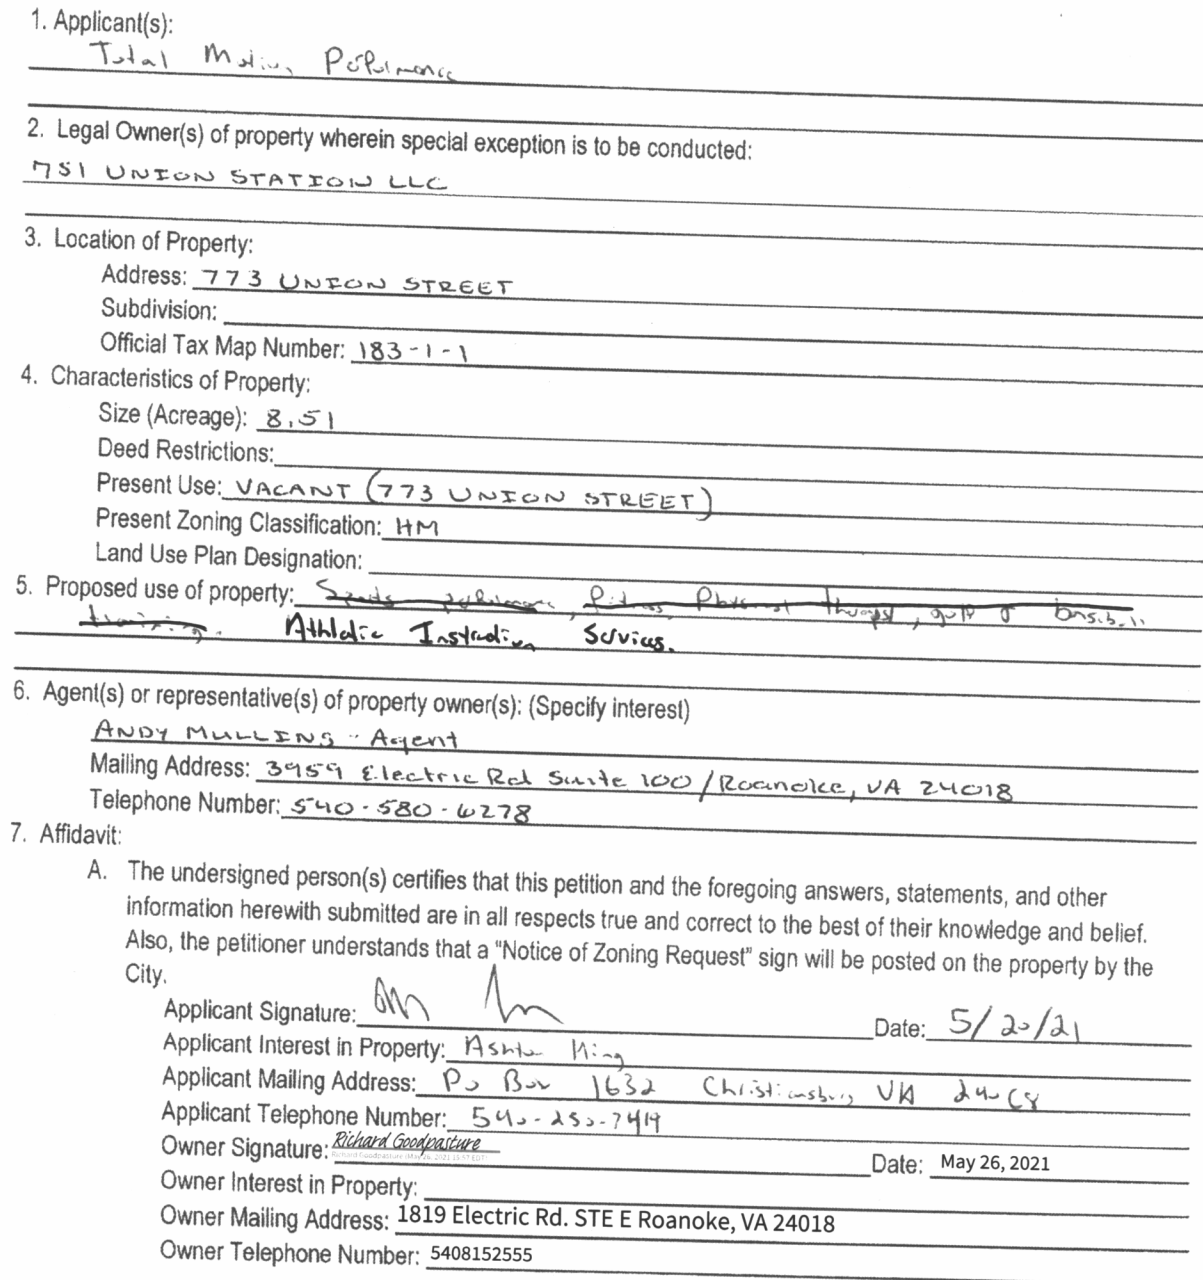 1. Applicant(s):
Total Motion Performance
2. Legal Owner(s) of property wherein special exception is to be conducted:
751 UNION STATION LLC
3. Location of Property:
Address: 773 UNION STREET
Subdivision:
Official Tax Map Number: 183-1-1
4. Characteristics of Property:
Size (Acreage): 8.51
Deed Restrictions:
Present Use: VACANT (773 UNION STREET)
Present Zoning Classification: HM
Land Use Plan Designation:
5. Proposed use of property: Sports performance, fitness, Physical therapy, golf & baseball
training. Athletic Instruction Services.
6. Agent(s) or representative(s) of property owner(s): (Specify interest)
ANDY MULLINS - Agent
Mailing Address: 3959 Electric Rd Suite 100 / Roanoke, VA 24018
Telephone Number: 540-580-6278
7. Affidavit:
A. The undersigned person(s) certifies that this petition and the foregoing answers, statements, and other
information herewith submitted are in all respects true and correct to the best of their knowledge and belief.
Also, the petitioner understands that a "Notice of Zoning Request" sign will be posted on the property by the
City.
Applicant Signature: Date: 5/20/21
Applicant Interest in Property: Ashton King
Applicant Mailing Address: Po Box 1632 Christiansburg VA 24068
Applicant Telephone Number: 540-250-7414
Owner Signature: Richard Goodpasture
Richard Goodpasture (May 26, 2021 15:57 EDT)
Date: May 26, 2021
Owner Interest in Property:
Owner Mailing Address: 1819 Electric Rd. STE E Roanoke, VA 24018
Owner Telephone Number: 5408152555